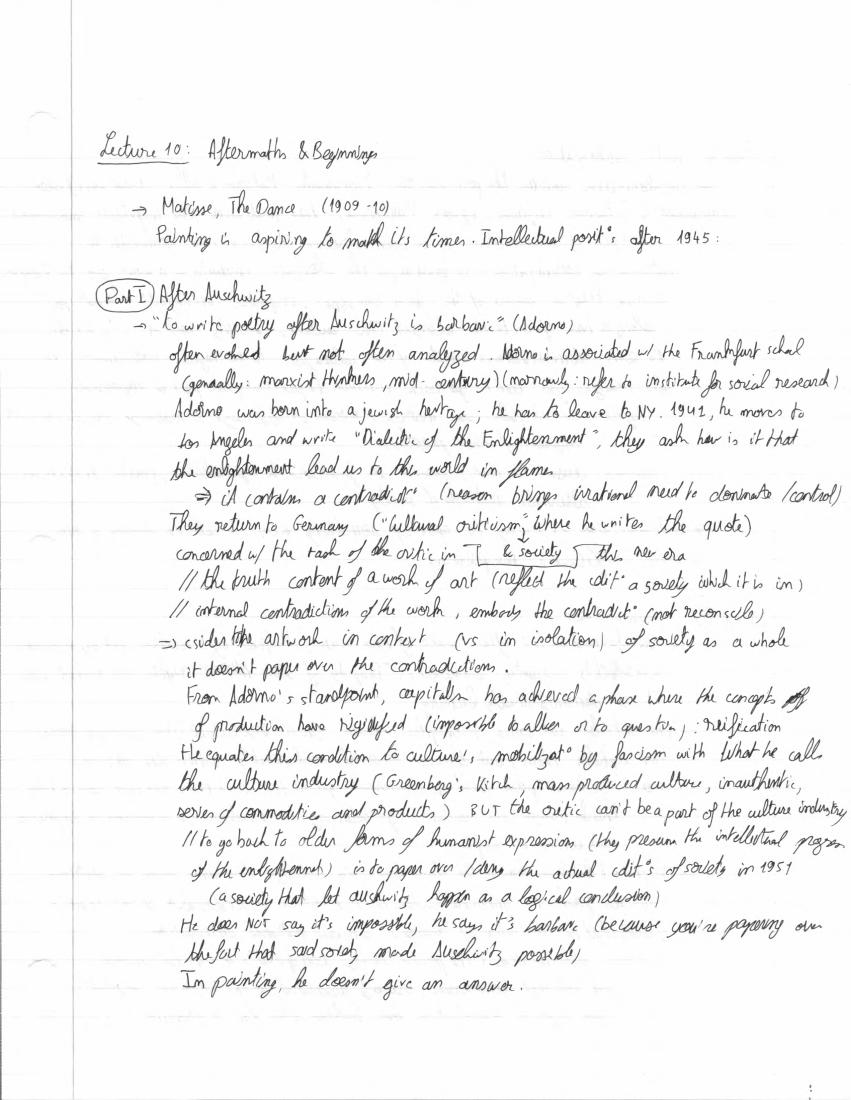 Lecture 10: Aftermaths & Beginnings
→ Matisse, The Dance (1909-10)
Painting is aspiring to match its times. Intellectual posit°s after 1945:
Part I After Auschwitz
→ "to write poetry after Auschwitz is barbaric" (Adorno)
often evoked but not often analyzed. Adorno is associated w/ the Frankfurt school
(generally: marxist thinkers, mid-century) (narrowly: refer to institute for social research)
Adorno was born into a jewish heritage; he has to leave to NY. 1941, he moves to
Los Angeles and write "Dialectic of the Enlightenment", they ask how is it that
the enlightenment lead us to this world in flames
⇒ it contains a contradict° (reason brings irrational need to dominate/control)
They return to Germany ("Cultural criticism" where he writes the quote)
& society
concerned w/ the task of the critic in this new era
// the truth content of a work of art (reflect the cdit° a society which it is in)
// internal contradictions of the work, embody the contradict° (not reconcile)
⇒ csider the artwork in context (vs in isolation) of society as a whole
it doesn't paper over the contradictions.
From Adorno's standpoint, capitalism has achieved a phase where the concepts
of production have rigidified (impossible to alter or to question): reification
He equates this condition to culture's mobilizat° by fascism with what he calls
the culture industry (Greenberg's Kitch, mass produced culture, inauthentic,
series of commodities and products) BUT the critic can't be a part of the culture industry
// to go back to older forms of humanist expression (they presume the intellectual progress
of the enlightenment) is to paper over/deny the actual cdit°s of society in 1951
(a society that let auschwitz happen as a logical conclusion)
He does NOT say it's impossible, he says it's barbaric (because you're papering over
the fact that said society made Auschwitz possible)
In painting, he doesn't give an answer.